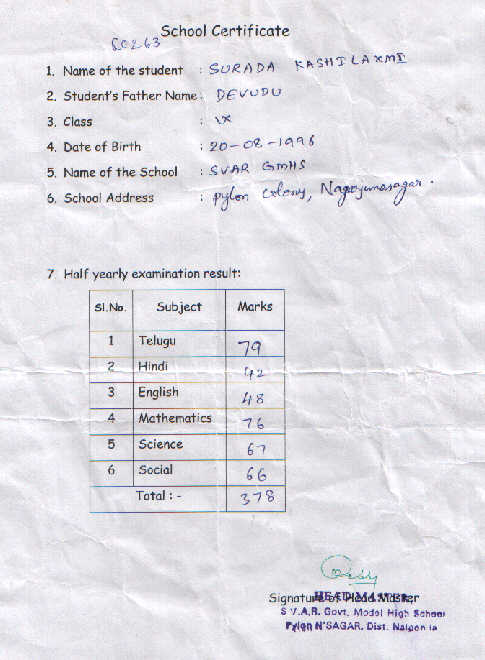 School Certificate
60263
1. Name of the student : SURADA KASHILAXMI
2. Student's Father Name: DEVUDU
3. Class : IX
4. Date of Birth : 20-08-1996
5. Name of the School : SVAR GMHS
6. School Address : pylon colony, Nagarjunasagar.
7 Half yearly examination result:
Sl.No. Subject Marks
1 Telugu 79
2 Hindi 42
3 English 48
4 Mathematics 76
5 Science 67
6 Social 66
Total : - 378
Signature of Head Master
HEADMASTER
S.V.A.R. Govt. Model High School
Pylon N'SAGAR. Dist. Nalgonda